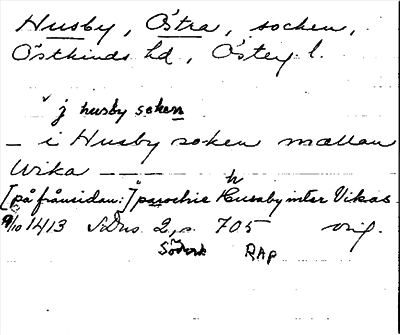 Husby, Östra, socken,
Östkinds hd, Östey l.
j husby soken
_ i Husby soken mællan
Wika _ _ _ _
[på frånsidan:] parochie Husaby inter Vikas
9/10 1413 SDns 2, s. 705 orig.
Söderk RAp